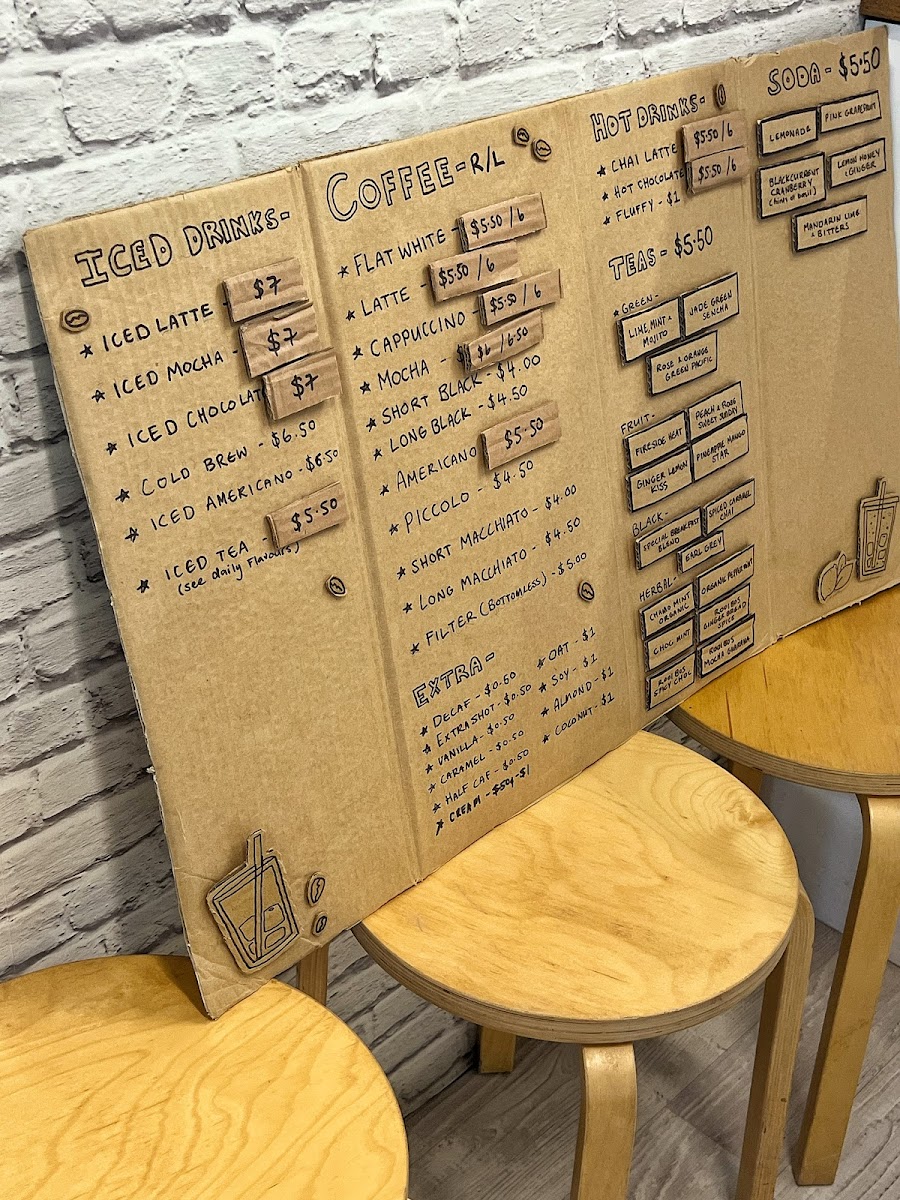 ICED DRINKS-
★ ICED LATTE $7
★ ICED MOCHA - $7
★ ICED CHOCOLAT $7
★ COLD BREW - $6.50
★ ICED AMERICANO - $6.50
★ ICED TEA - $5.50
(see daily flavours)
COFFEE - R/L
★ FLAT WHITE - $5.50 / 6
★ LATTE - $5.50 / 6
★ CAPPUCCINO - $5.50 / 6
★ MOCHA - $6 / 6.50
★ SHORT BLACK - $4.00
★ LONG BLACK - $4.50
★ AMERICANO $5.50
★ PICCOLO - $4.50
★ SHORT MACCHIATO - $4.00
★ LONG MACCHIATO - $4.50
★ FILTER (BOTTOMLESS) - $5.00
EXTRA -
★ DECAF - $0.60
★ EXTRA SHOT - $0.50
★ VANILLA - $0.50
★ CARAMEL - $0.50
★ HALF CAF - $0.50
★ CREAM - $1
★ OAT - $1
★ SOY - $1
★ ALMOND - $1
★ COCONUT - $1
HOT DRINKS -
★ CHAI LATTE $5.50 / 6
★ HOT CHOCOLATE $5.50 / 6
★ FLUFFY - $1
TEAS - $5.50
★ GREEN -
LIME, MINT &
MOJITO
JADE GREEN
SENCHA
ROSE & ORANGE
GREEN PACIFIC
FRUIT -
FIRESIDE HEAT
PEACH & ROSE
SWEET SUNDAY
GINGER LEMON
KISS
PINEAPPLE MANGO
STAR
BLACK -
SPECIAL BREAKFAST
BLEND
SPICED CARAMEL
CHAI
EARL GREY
HERBAL -
CHAMO MINT
ORGANIC
ORGANIC PEPPERMINT
CHOC MINT
ROOIBOS
GINGERBREAD
SPICE
ROOIBOS
SPICY CHOC
ROOIBOS
MOCHA GUARANA
SODA - $5.50
LEMONADE
PINK GRAPEFRUIT
BLACKCURRENT
CRANBERRY
(hints of basil)
LEMON HONEY
& GINGER
MANDARIN LIME
& BITTERS